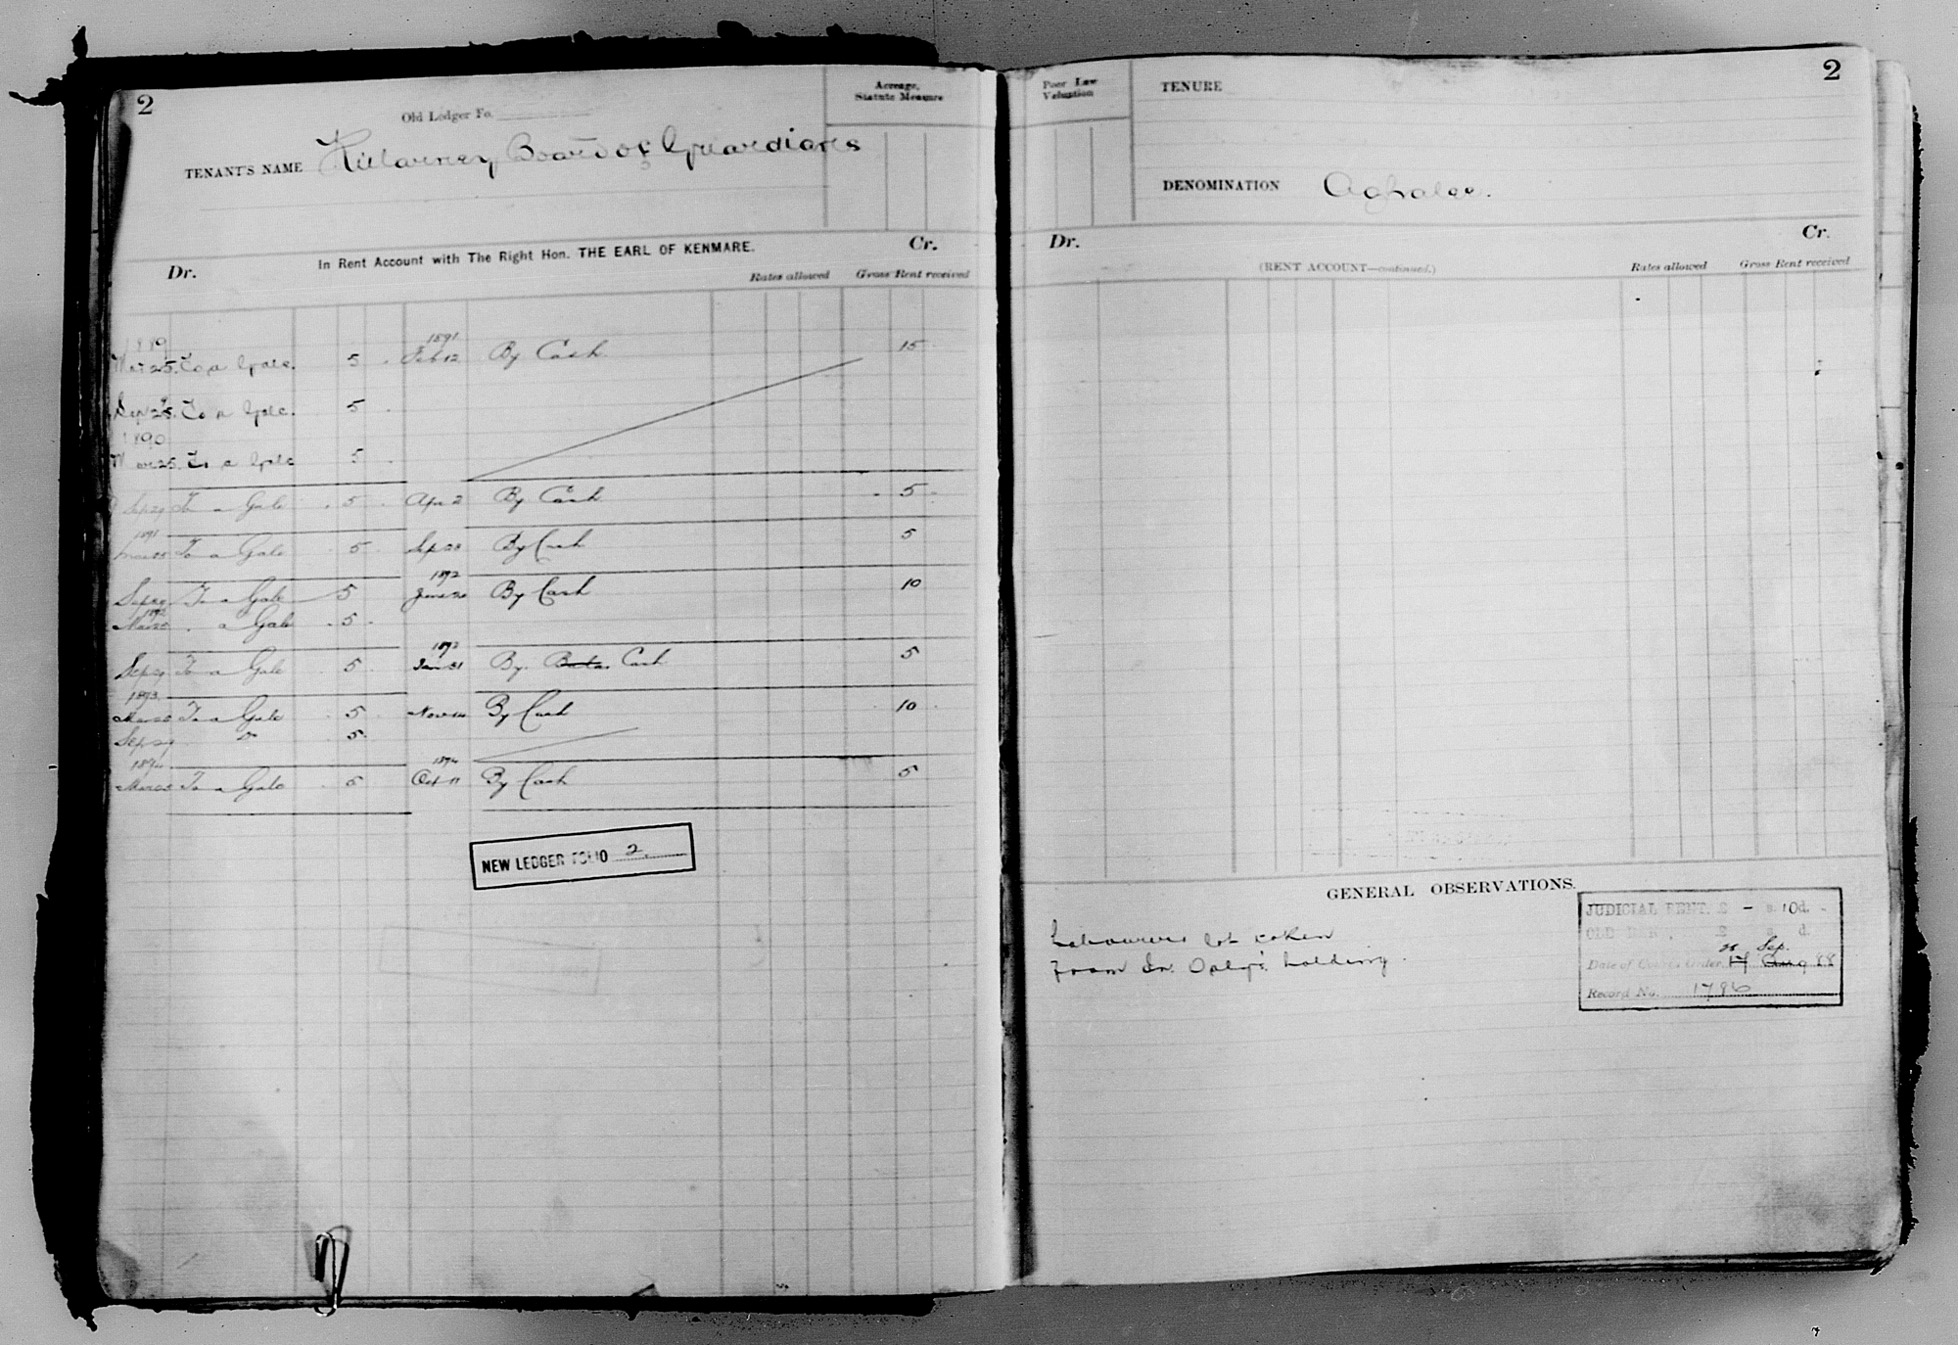 2
Old Ledger Fo.
Acreage,
Statute Measure
TENANT'S NAME Killarney Board of Guardians
In Rent Account with The Right Hon. THE EARL OF KENMARE.
Dr.
Cr.
Rates allowed Gross Rent received
1889 1891
Mar 25. To a Gale. 5 Feb 12 By Cash 15
Sep 25. To a Gale. 5
1890
Mar 25. To a Gale 5
Sep 29 To a Gale 5 Apr 2 By Cash 5
1891
Mar 25 To a Gale 5 Sep 23 By Cash 5
1892
Sep 29 To a Gale 5 June 20 By Cash 10
1892
Mar 25 . a Gale 5
1893
Sep 29 To a Gale 5 Jan 31 By Cash 5
1893
Mar 25 To a Gale 5 Nov 14 By Cash 10
Sep 29 Do 5
1894 1894
Mar 25 To a Gale 5 Oct 11 By Cash 5
NEW LEDGER FOLIO 2
Poor Law
Valuation
TENURE
2
DENOMINATION Aghalee.
Dr.
Cr.
(RENT ACCOUNT—continued.)
Rates allowed Gross Rent received
GENERAL OBSERVATIONS.
Labourers lot taken
from holding.
JUDICIAL RENT, £ - s. 10d. -
OLD RENT, £ s. d.
Sep.
Date of Court Order 17 Aug 88
Record No. 1796